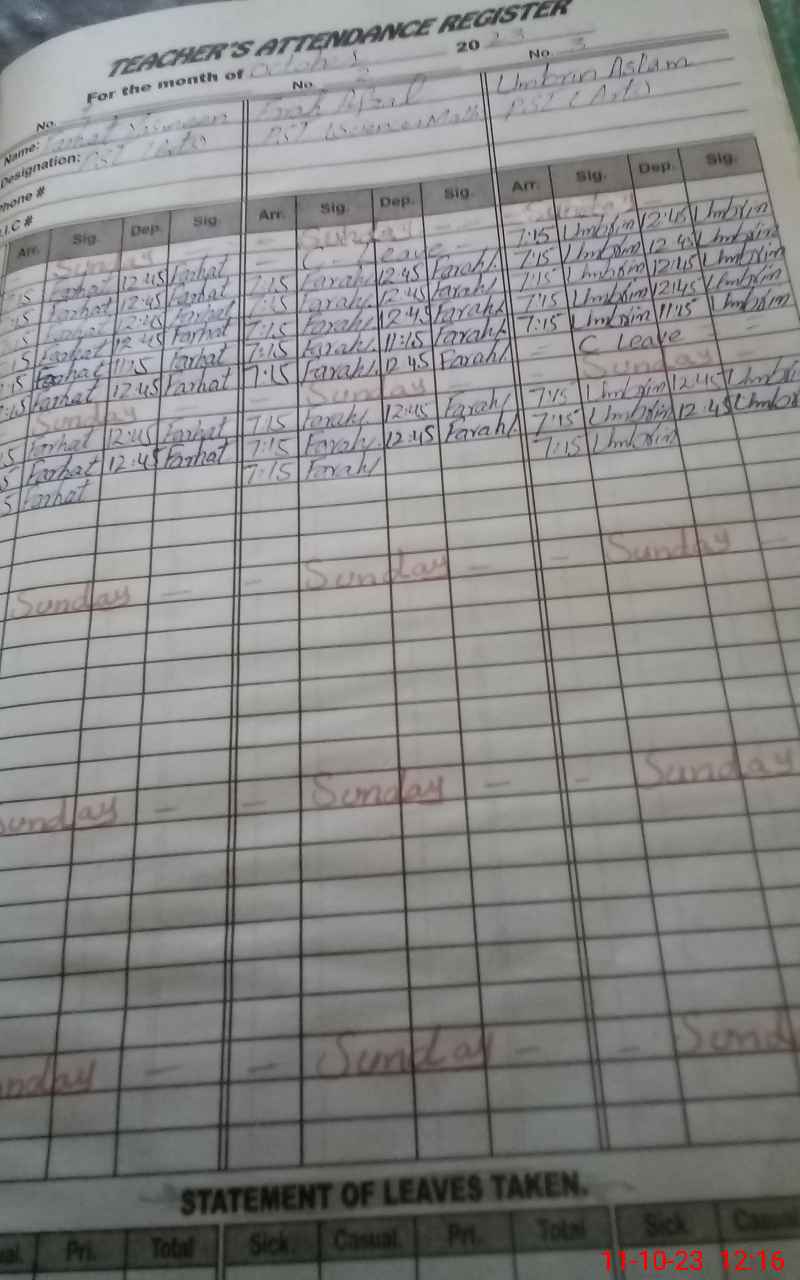 TEACHER'S ATTENDANCE REGISTER
For the month of October 2023
No. 1 No. 2 No. 3
Name: Farhat Yasmeen Farah Umbrin Aslam
Designation: PST (Arts) PST (Science Math) PST (Arts)
Phone #
I.C #
Arr. Sig. Dep. Sig. Arr. Sig. Dep. Sig. Arr. Sig. Dep. Sig.
Sunday - - - Sunday - - - Sunday -
:15 Farhat 12:45 Farhat - C Leave - 7:15 Umbrin 12:45 Umbrin
:15 Farhat 12:45 Farhat 7:15 Farah 12:45 Farah 7:15 Umbrin 12:45 Umbrin
:15 Farhat 12:45 Farhat 7:15 Farah 12:45 Farah 7:15 Umbrin 12:45 Umbrin
:15 Farhat 12:45 Farhat 7:15 Farah 12:45 Farah 7:15 Umbrin 12:45 Umbrin
:15 Farhat 11:15 Farhat 7:15 Farah 11:15 Farah 7:15 Umbrin 11:15 Umbrin
7:15 Farhat 12:45 Farhat 7:15 Farah 12:45 Farah - C Leave - -
Sunday - - - Sunday - - - Sunday -
5 Farhat 12:45 Farhat 7:15 Farah 12:45 Farah 7:15 Umbrin 12:45 Umbrin
5 Farhat 12:45 Farhat 7:15 Farah 12:45 Farah 7:15 Umbrin 12:45 Umbrin
5 Farhat 7:15 Farah 7:15 Umbrin
Sunday - - Sunday - - Sunday -
unday - - Sunday - - Sunday
nday - - Sunday - - Sund
STATEMENT OF LEAVES TAKEN.
ual. Pri. Total Sick. Casual. Pri. Total Sick. Casual.
11-10-23 12:16